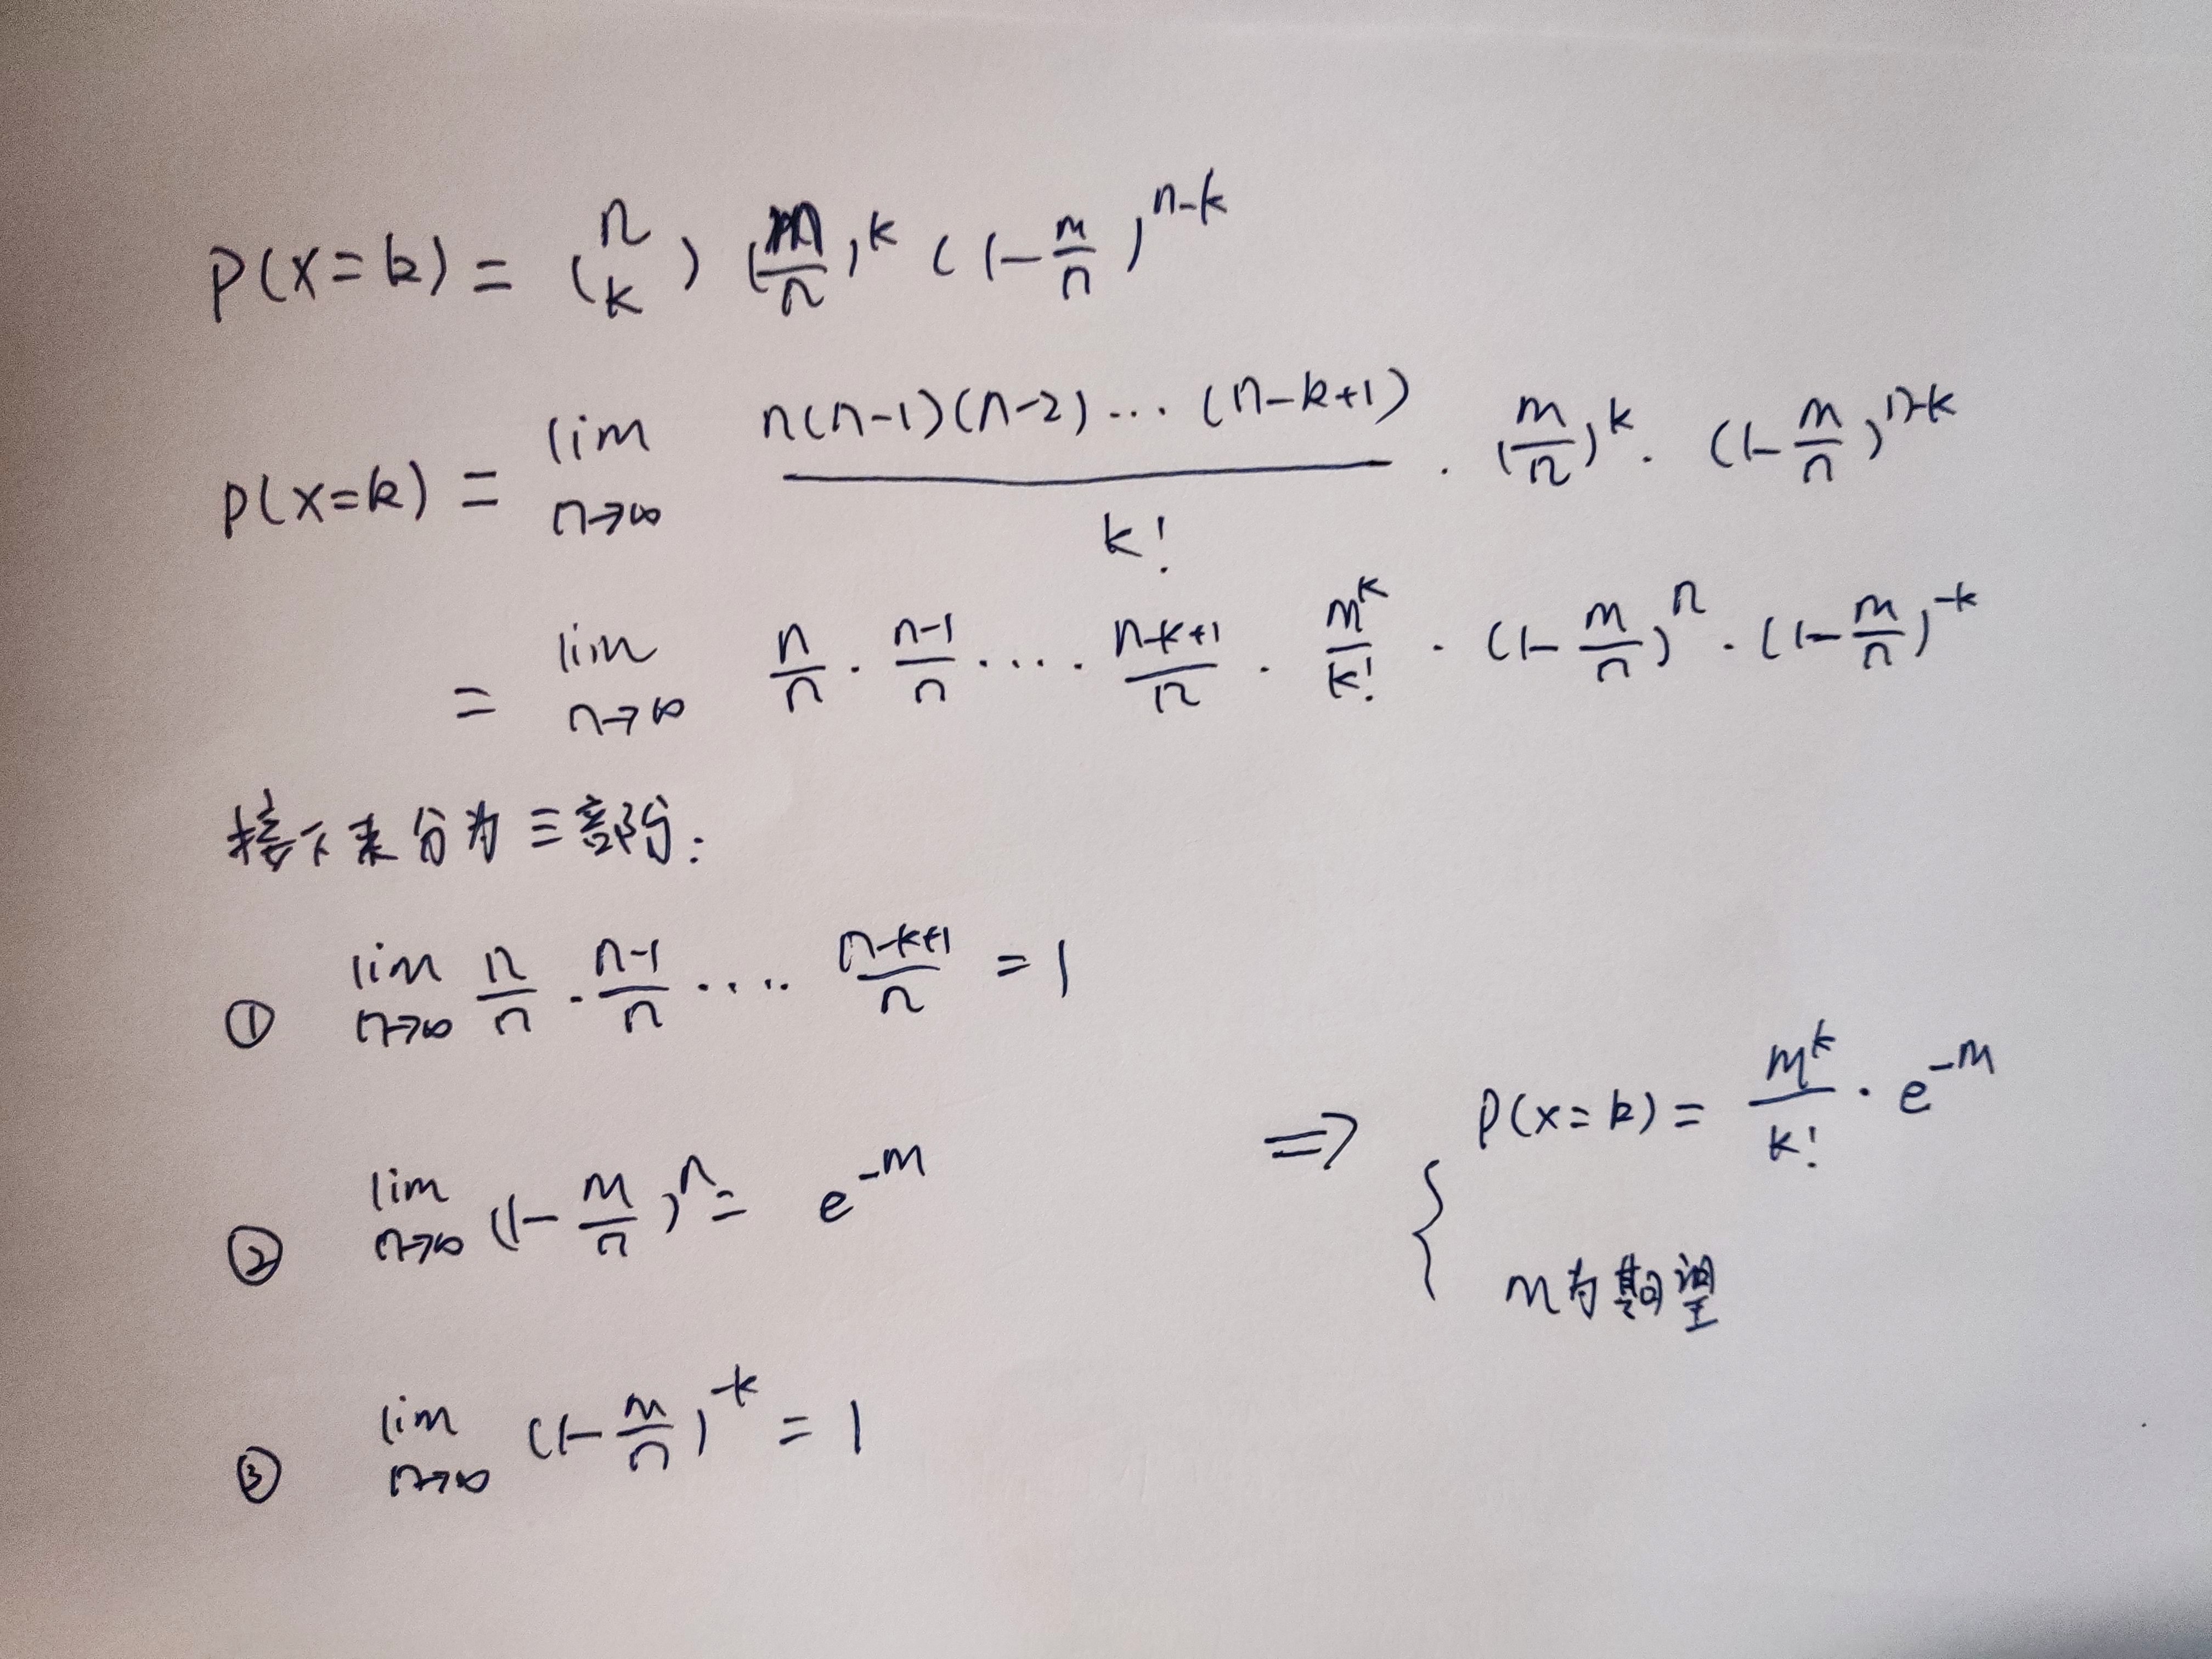 P(X=k) = (n k) (m/n)^k (1-m/n)^{n-k}
P(X=k) = lim n→∞ n(n-1)(n-2)...(n-k+1)/k! · (m/n)^k · (1-m/n)^{n-k}
= lim n→∞ n/n · n-1/n · ... · n-k+1/n · m^k/k! · (1-m/n)^n · (1-m/n)^{-k}
接下来分为三部分:
① lim n→∞ n/n · n-1/n · .... n-k+1/n = 1
② lim n→∞ (1-m/n)^n = e^{-m}
③ lim n→∞ (1-m/n)^{-k} = 1
⇒ { P(X=k) = m^k/k! · e^{-m}
m为期望